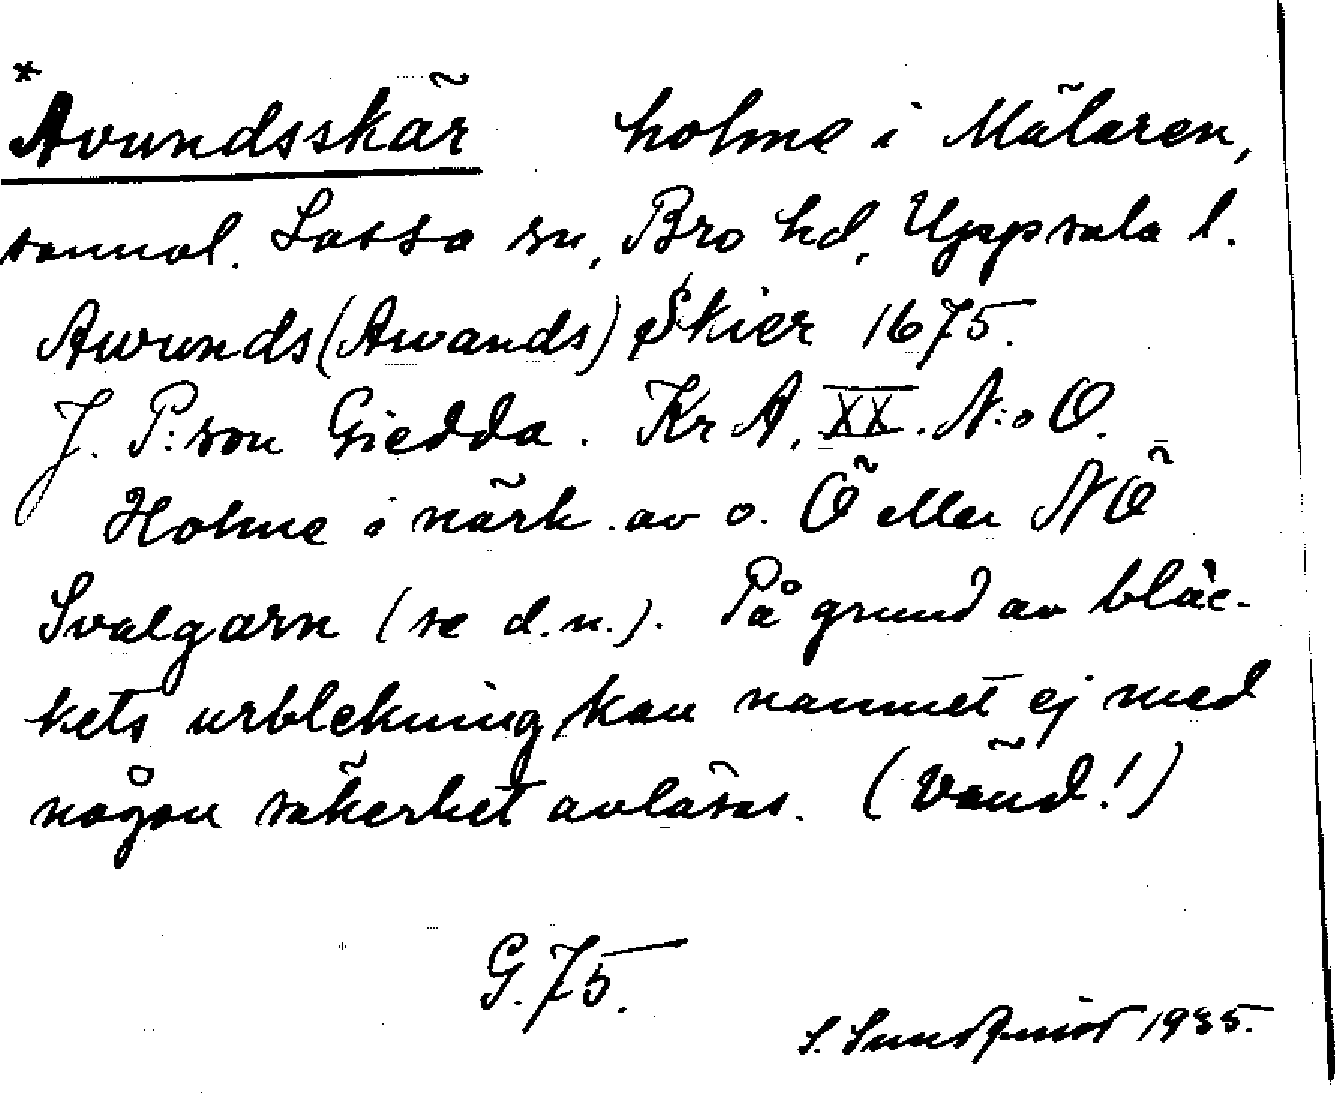 *Avundsskär holme i Mälaren,
sannol. Lossa sn, Bro hd, Uppsala l.
Awunds(Awands) Skier 1675.
J. P:son Giedda. KrA. XX. N:o O.
Holme i närh. av o. Ö eller NÖ
Svalgarn (se d.n.). På grund av bläc-
kets urblekning kan namnet ej med
någon säkerhet avläsas. (Vänd!)
G. 75.
S. Sundqvist 1935.